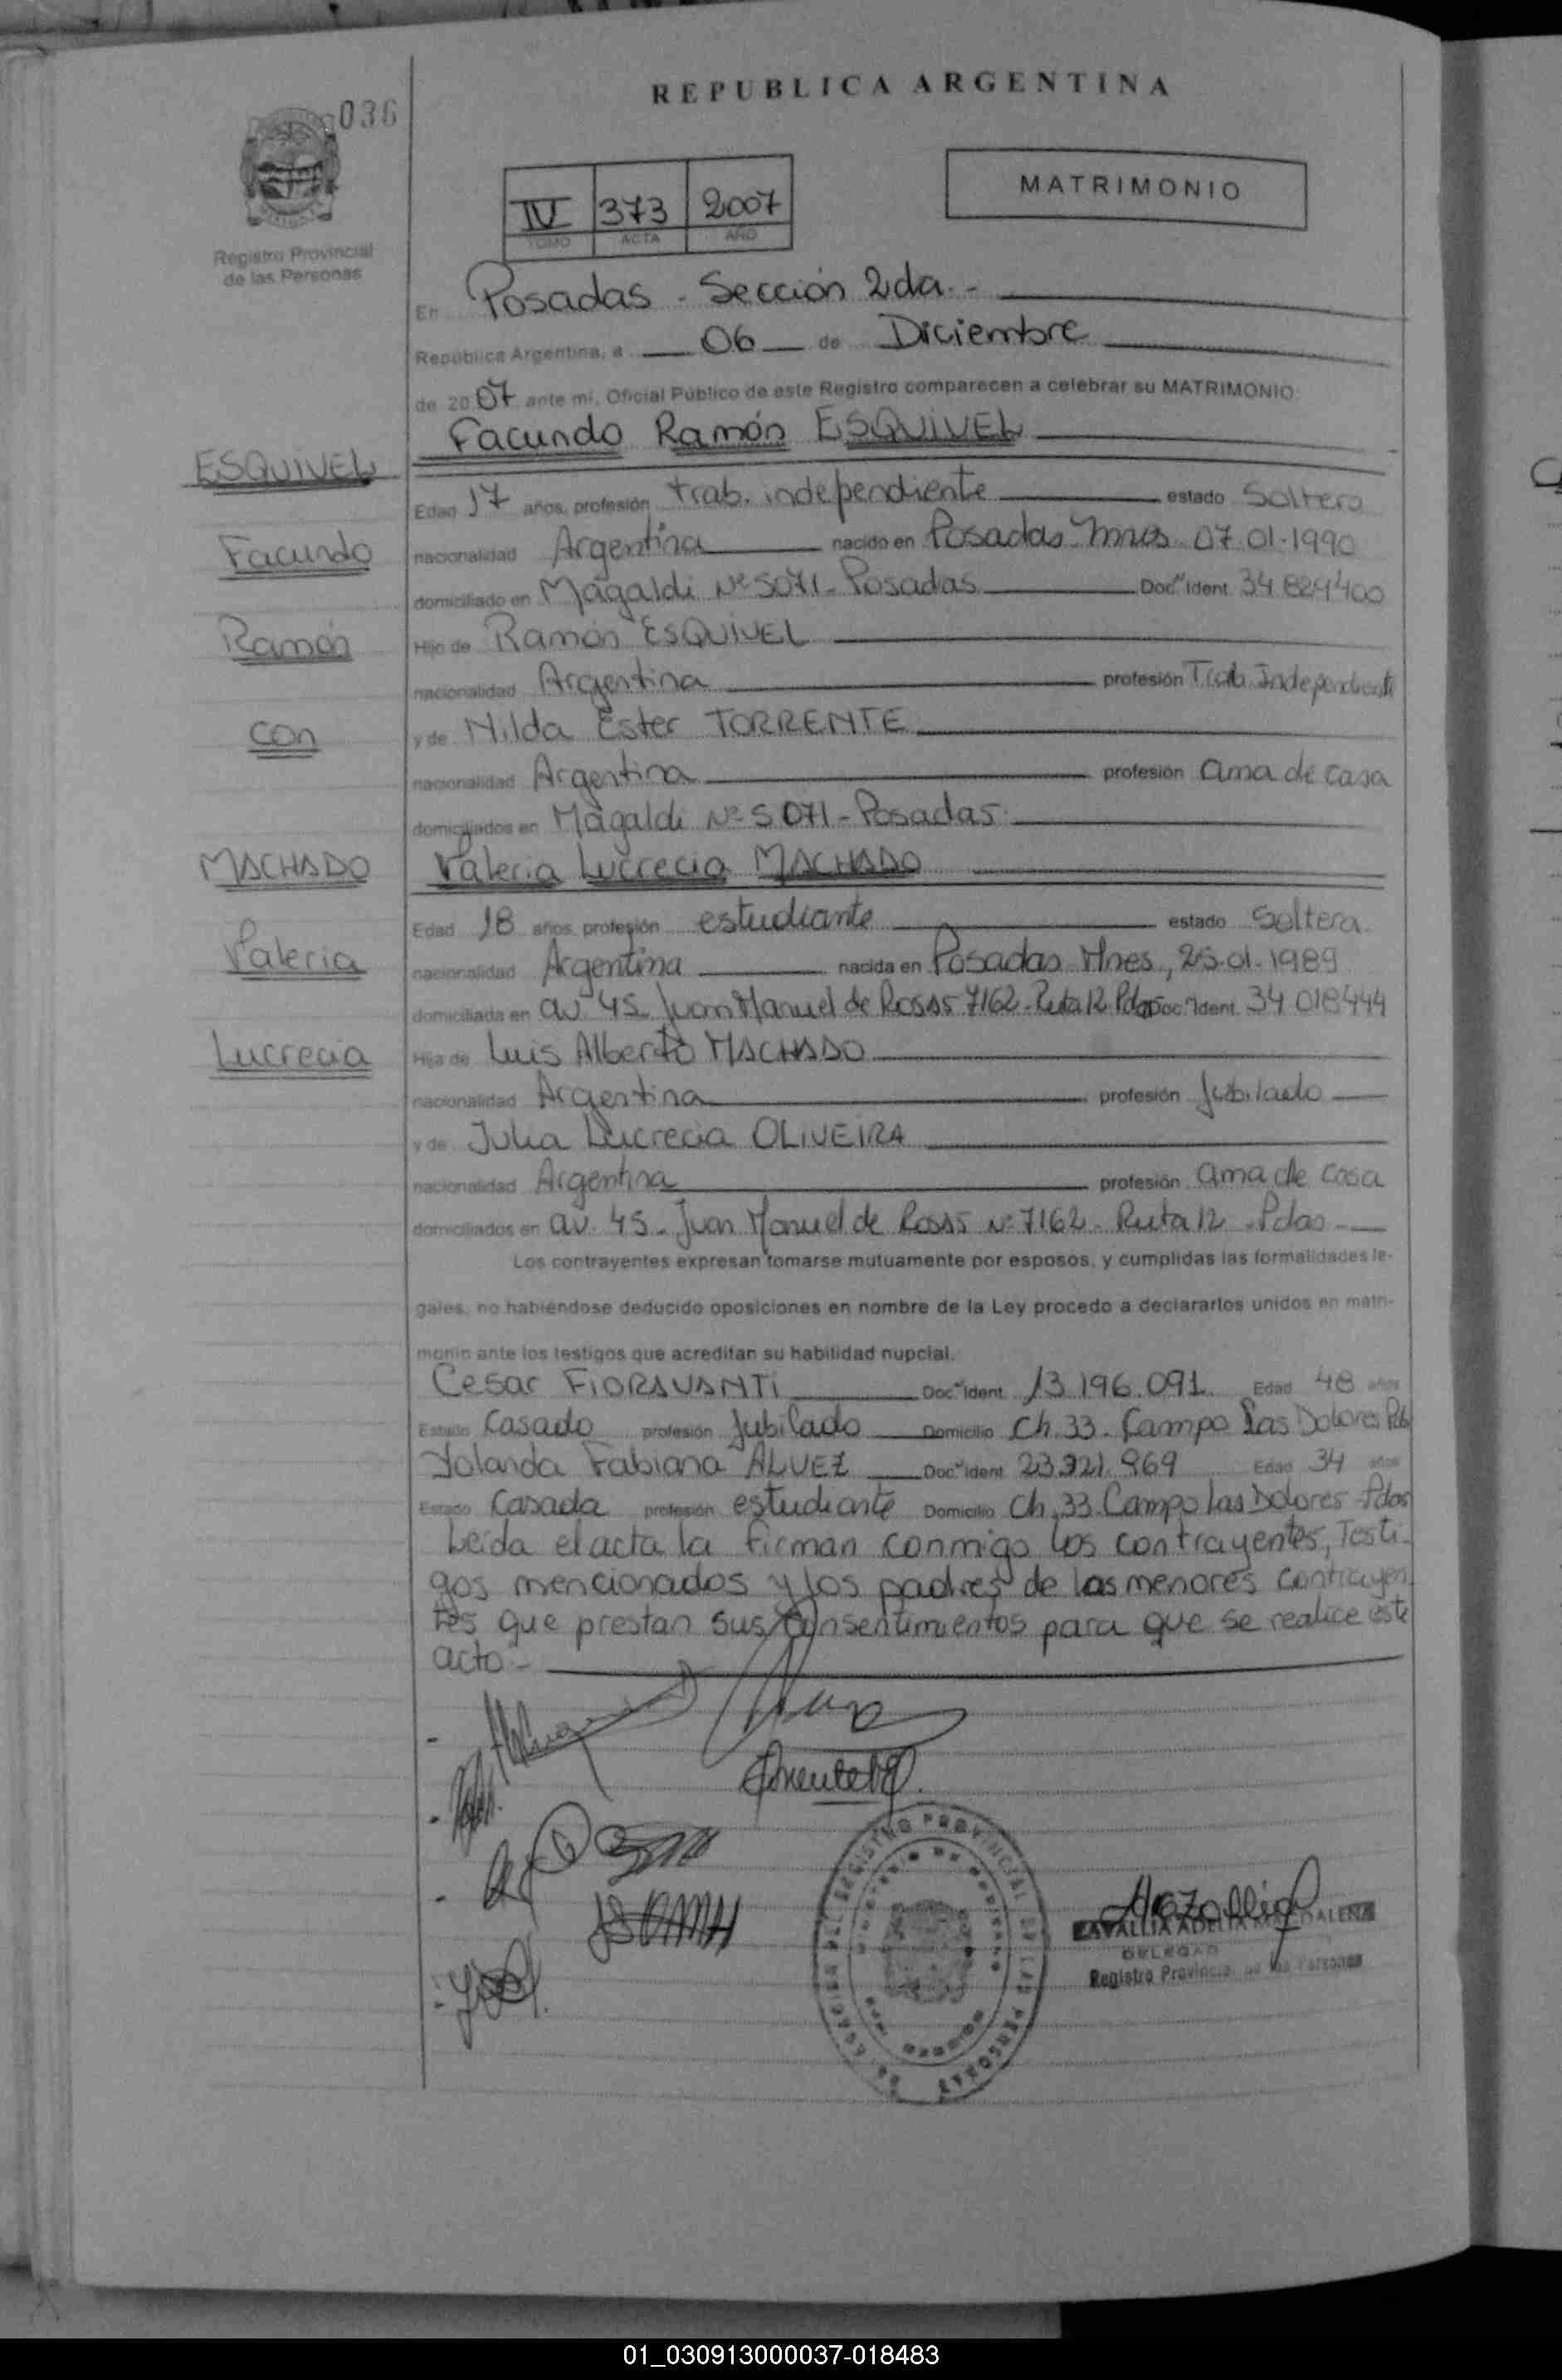 REPUBLICA ARGENTINA
036
MATRIMONIO
IV 373 2007
TOMO ACTA AÑO
Registro Provincial
de las Personas
En Posadas - Sección 2da.-
República Argentina, a 06 de Diciembre
de 2007 ante mí, Oficial Público de este Registro comparecen a celebrar su MATRIMONIO:
Facundo Ramón ESQUIVEL
ESQUIVEL
Edad 17 años, profesión trab. independiente estado Soltero
Facundo
nacionalidad Argentina nacido en Posadas Mnes 07.01.1990
domiciliado en Magaldi Nº 5071 - Posadas Doc. Ident. 34 824400
Ramón
Hijo de Ramón ESQUIVEL
nacionalidad Argentina profesión Trab. Independiente
con
y de Nilda Ester TORRENTE
nacionalidad Argentina profesión ama de casa
domiciliados en Magaldi Nº 5071 - Posadas.
MACHADO
Valeria Lucrecia MACHADO
Edad 18 años, profesión estudiante estado Soltera
Valeria
nacionalidad Argentina nacida en Posadas Mnes, 25.01.1989
domiciliada en av. 45 Juan Manuel de Rosas 7162 - Ruta 12 Pdas Doc. Ident. 34 018444
Lucrecia
Hija de Luis Alberto MACHADO
nacionalidad Argentina profesión Jubilado
y de Julia Lucrecia OLIVEIRA
nacionalidad Argentina profesión ama de casa
domiciliados en av. 45 - Juan Manuel de Rosas Nº 7162 - Ruta 12 - Pdas -
Los contrayentes expresan tomarse mutuamente por esposos, y cumplidas las formalidades le-
gales, no habiéndose deducido oposiciones en nombre de la Ley procedo a declararlos unidos en matri-
monio ante los testigos que acreditan su habilidad nupcial.
Cesar FIORAVANTI Doc. Ident. 13.196.091 Edad 48 años
Estado Casado profesión Jubilado Domicilio Ch. 33. Campo Las Dolores Pdas
Yolanda Fabiana ALVEZ Doc. Ident. 23.321.969 Edad 34 años
Estado Casada profesión estudiante Domicilio Ch. 33. Campo Las Dolores - Pdas
Leída el acta la firman conmigo los contrayentes, Testi-
gos mencionados y los padres de los menores contrayen
tes que prestan sus consentimientos para que se realice este
acto.-
REGISTRO PROVINCIAL DE LAS PERSONAS
ZAVALLIA ADELIA MAGDALENA
Registro Provincial de las Personas
01_030913000037-018483